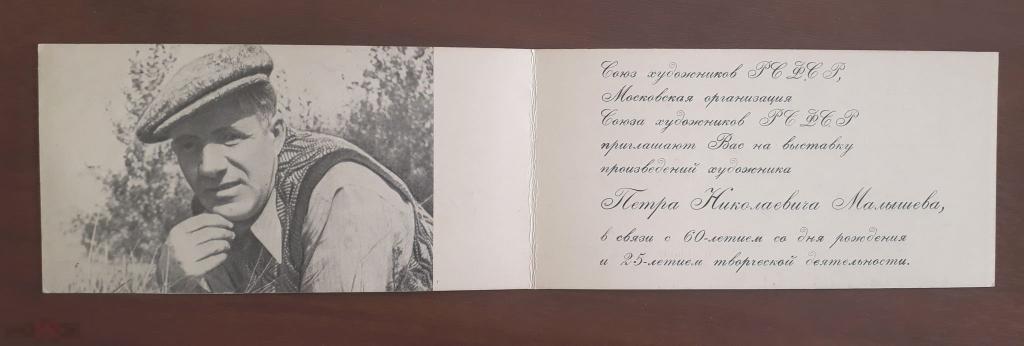 Союз художников РСФСР,
Московская организация
Союза художников РСФСР
приглашают Вас на выставку
произведений художника
Петра Николаевича Малышева,
в связи с 60-летием со дня рождения
и 25-летием творческой деятельности.